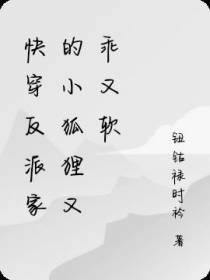 快穿反派家
的小狐狸又
乖又软
钮钴禄时衿 著